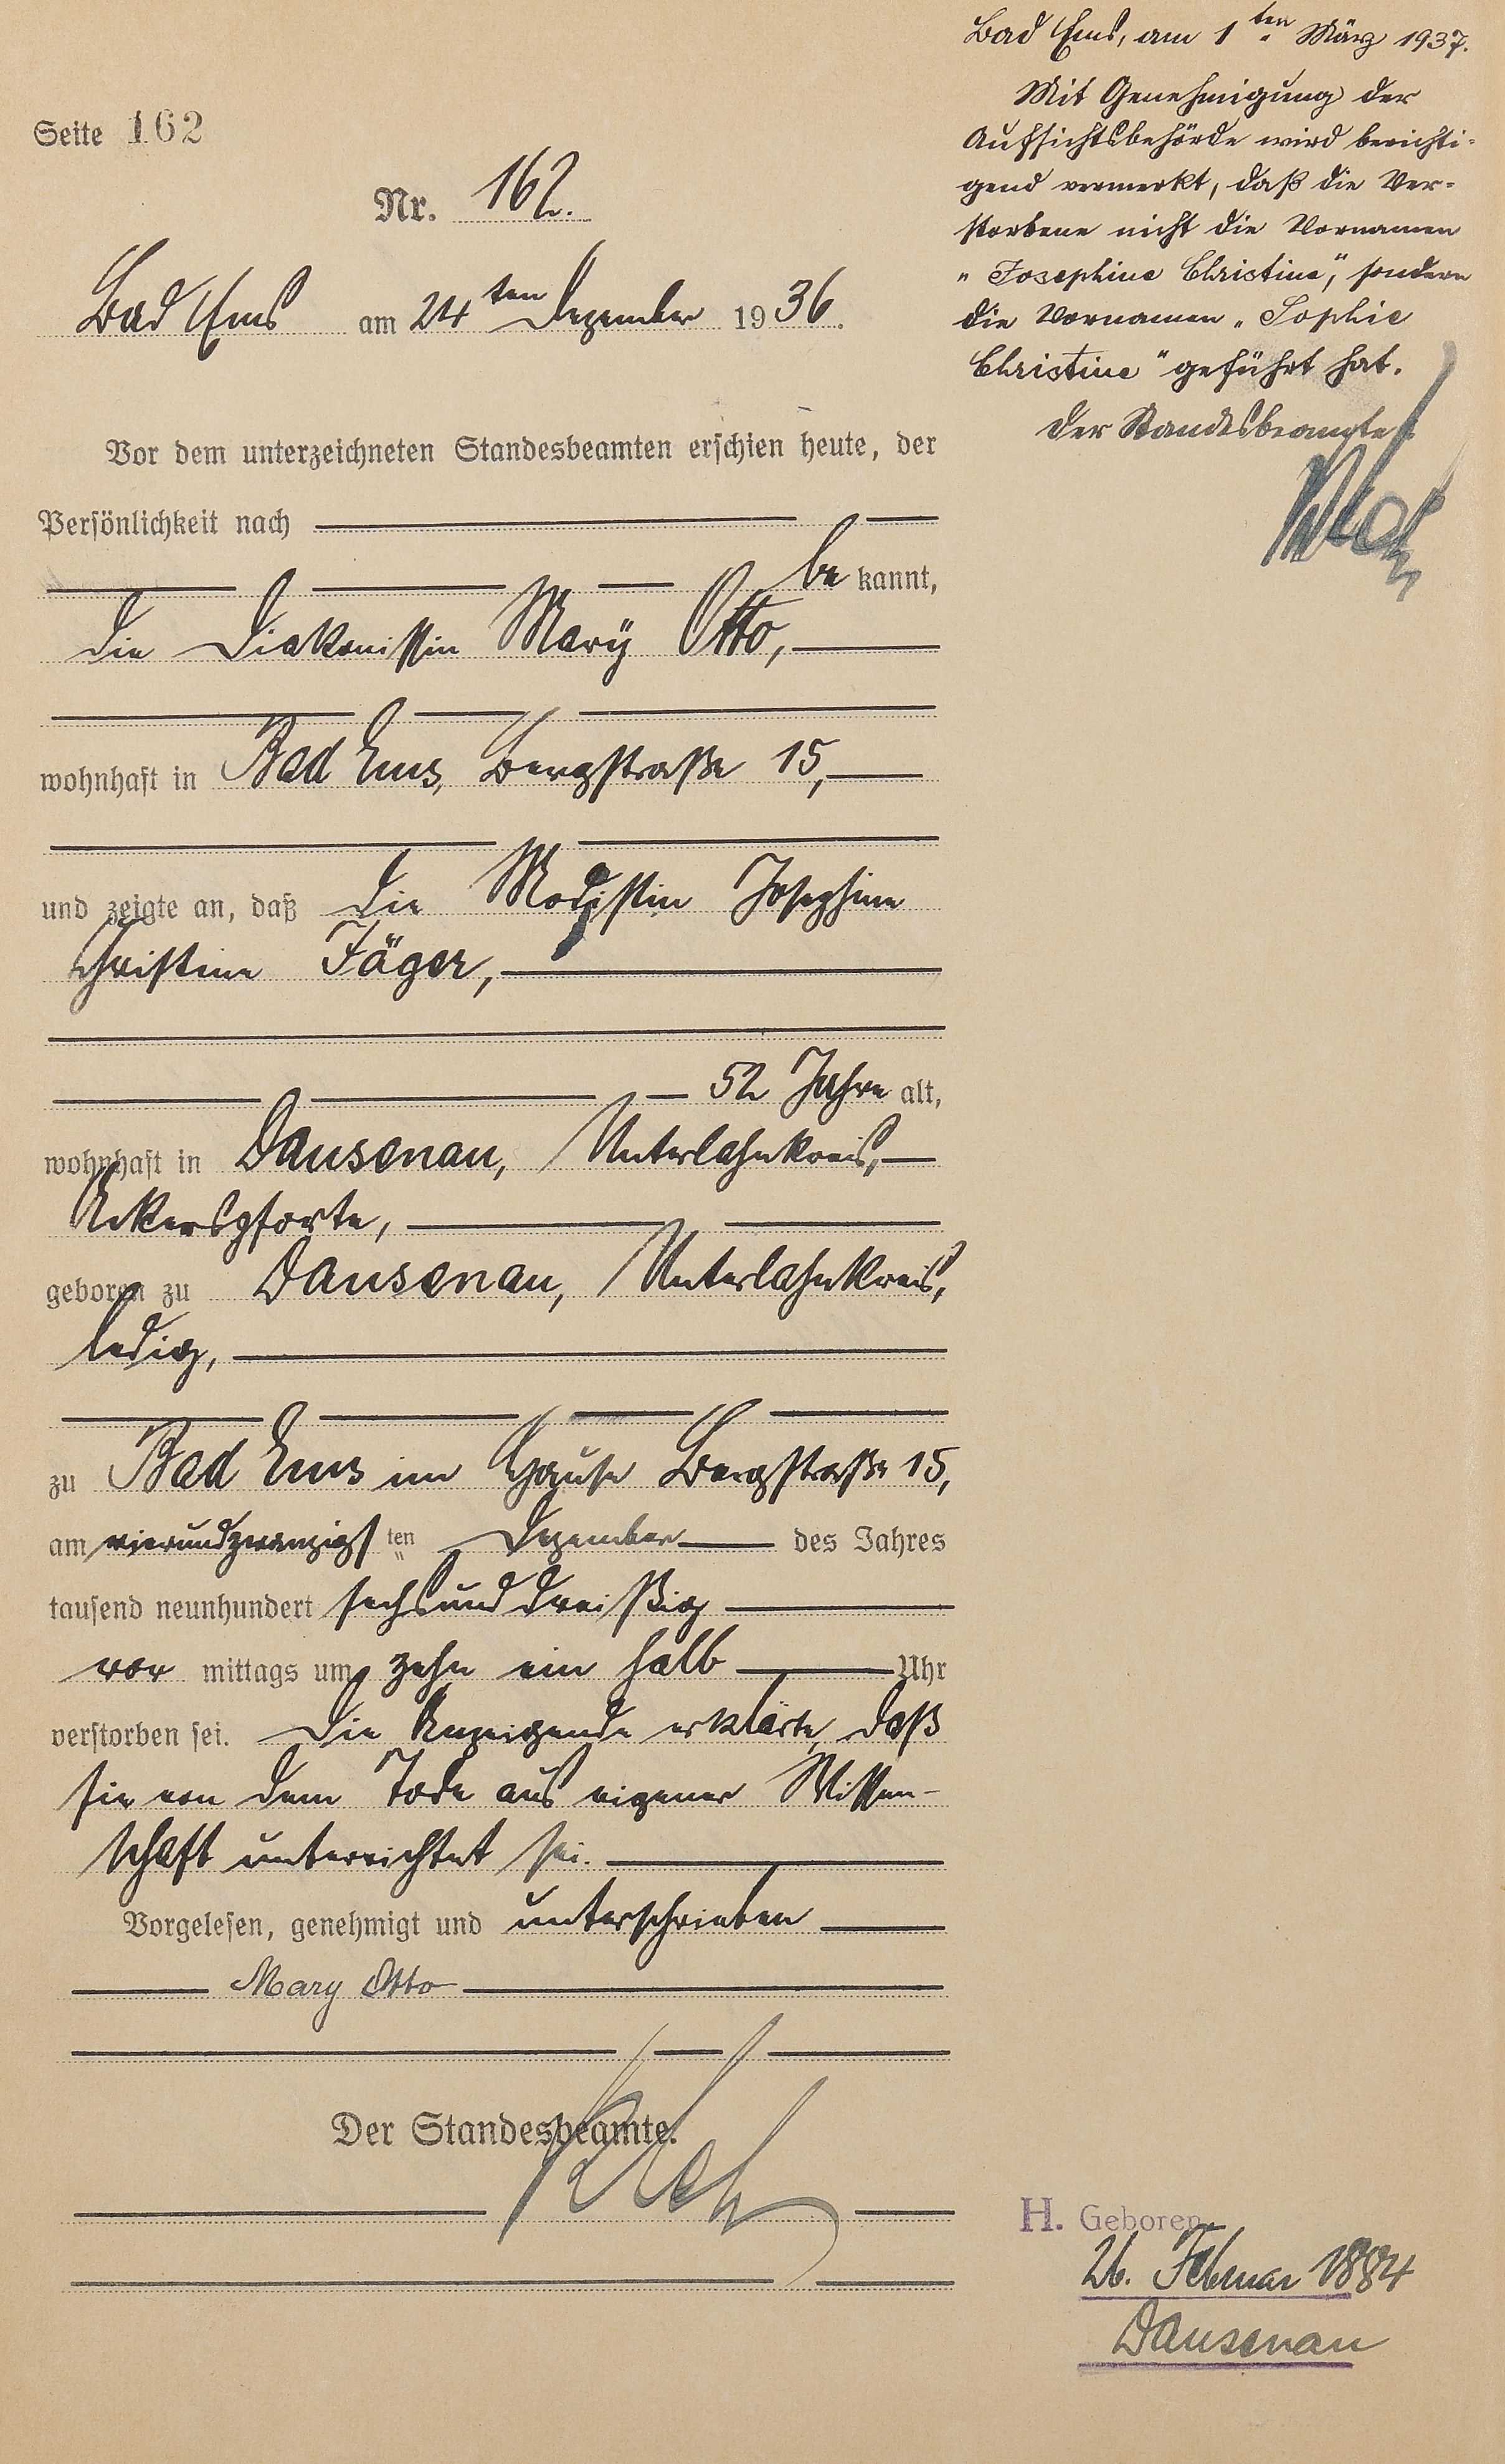 Seite 162
Nr. 162.
Bad Ems am 24ten Dezember 1936.
Vor dem unterzeichneten Standesbeamten erschien heute, der
Persönlichkeit nach
be kannt,
die Diakonissin Marÿ Otto,
wohnhaft in Bad Ems, Bergstraße 15,
und zeigte an, daß die Modistin Josephine
Christine Jäger,
52 Jahre alt,
wohnhaft in Dausenau, Unterlahnkreis,
Ackerspforte,
geboren zu Dausenau, Unterlahnkreis,
ledig,
zu Bad Ems im Hause Bergstraße 15,
am vierundzwanzigsten Dezember des Jahres
tausend neunhundert sechsunddreißig
vor mittags um zehn ein halb Uhr
verstorben sei. Die Anzeigende erklärte, daß
sie von dem Tode aus eigener Wissen-
schaft unterrichtet sei.
Vorgelesen, genehmigt und unterschrieben
Mary Otto
Der Standesbeamte.
Bad Ems, am 1ten März 1937.
Mit Genehmigung der
Aufsichtsbehörde wird berichti-
gend vermerkt, daß die Ver-
storbene nicht die Vornamen
"Josephine Christine", sondern
die Vornamen "Sophie
Christine" geführt hat.
Der Standesbeamte
H. Geboren
26. Februar 1884
Dausenau